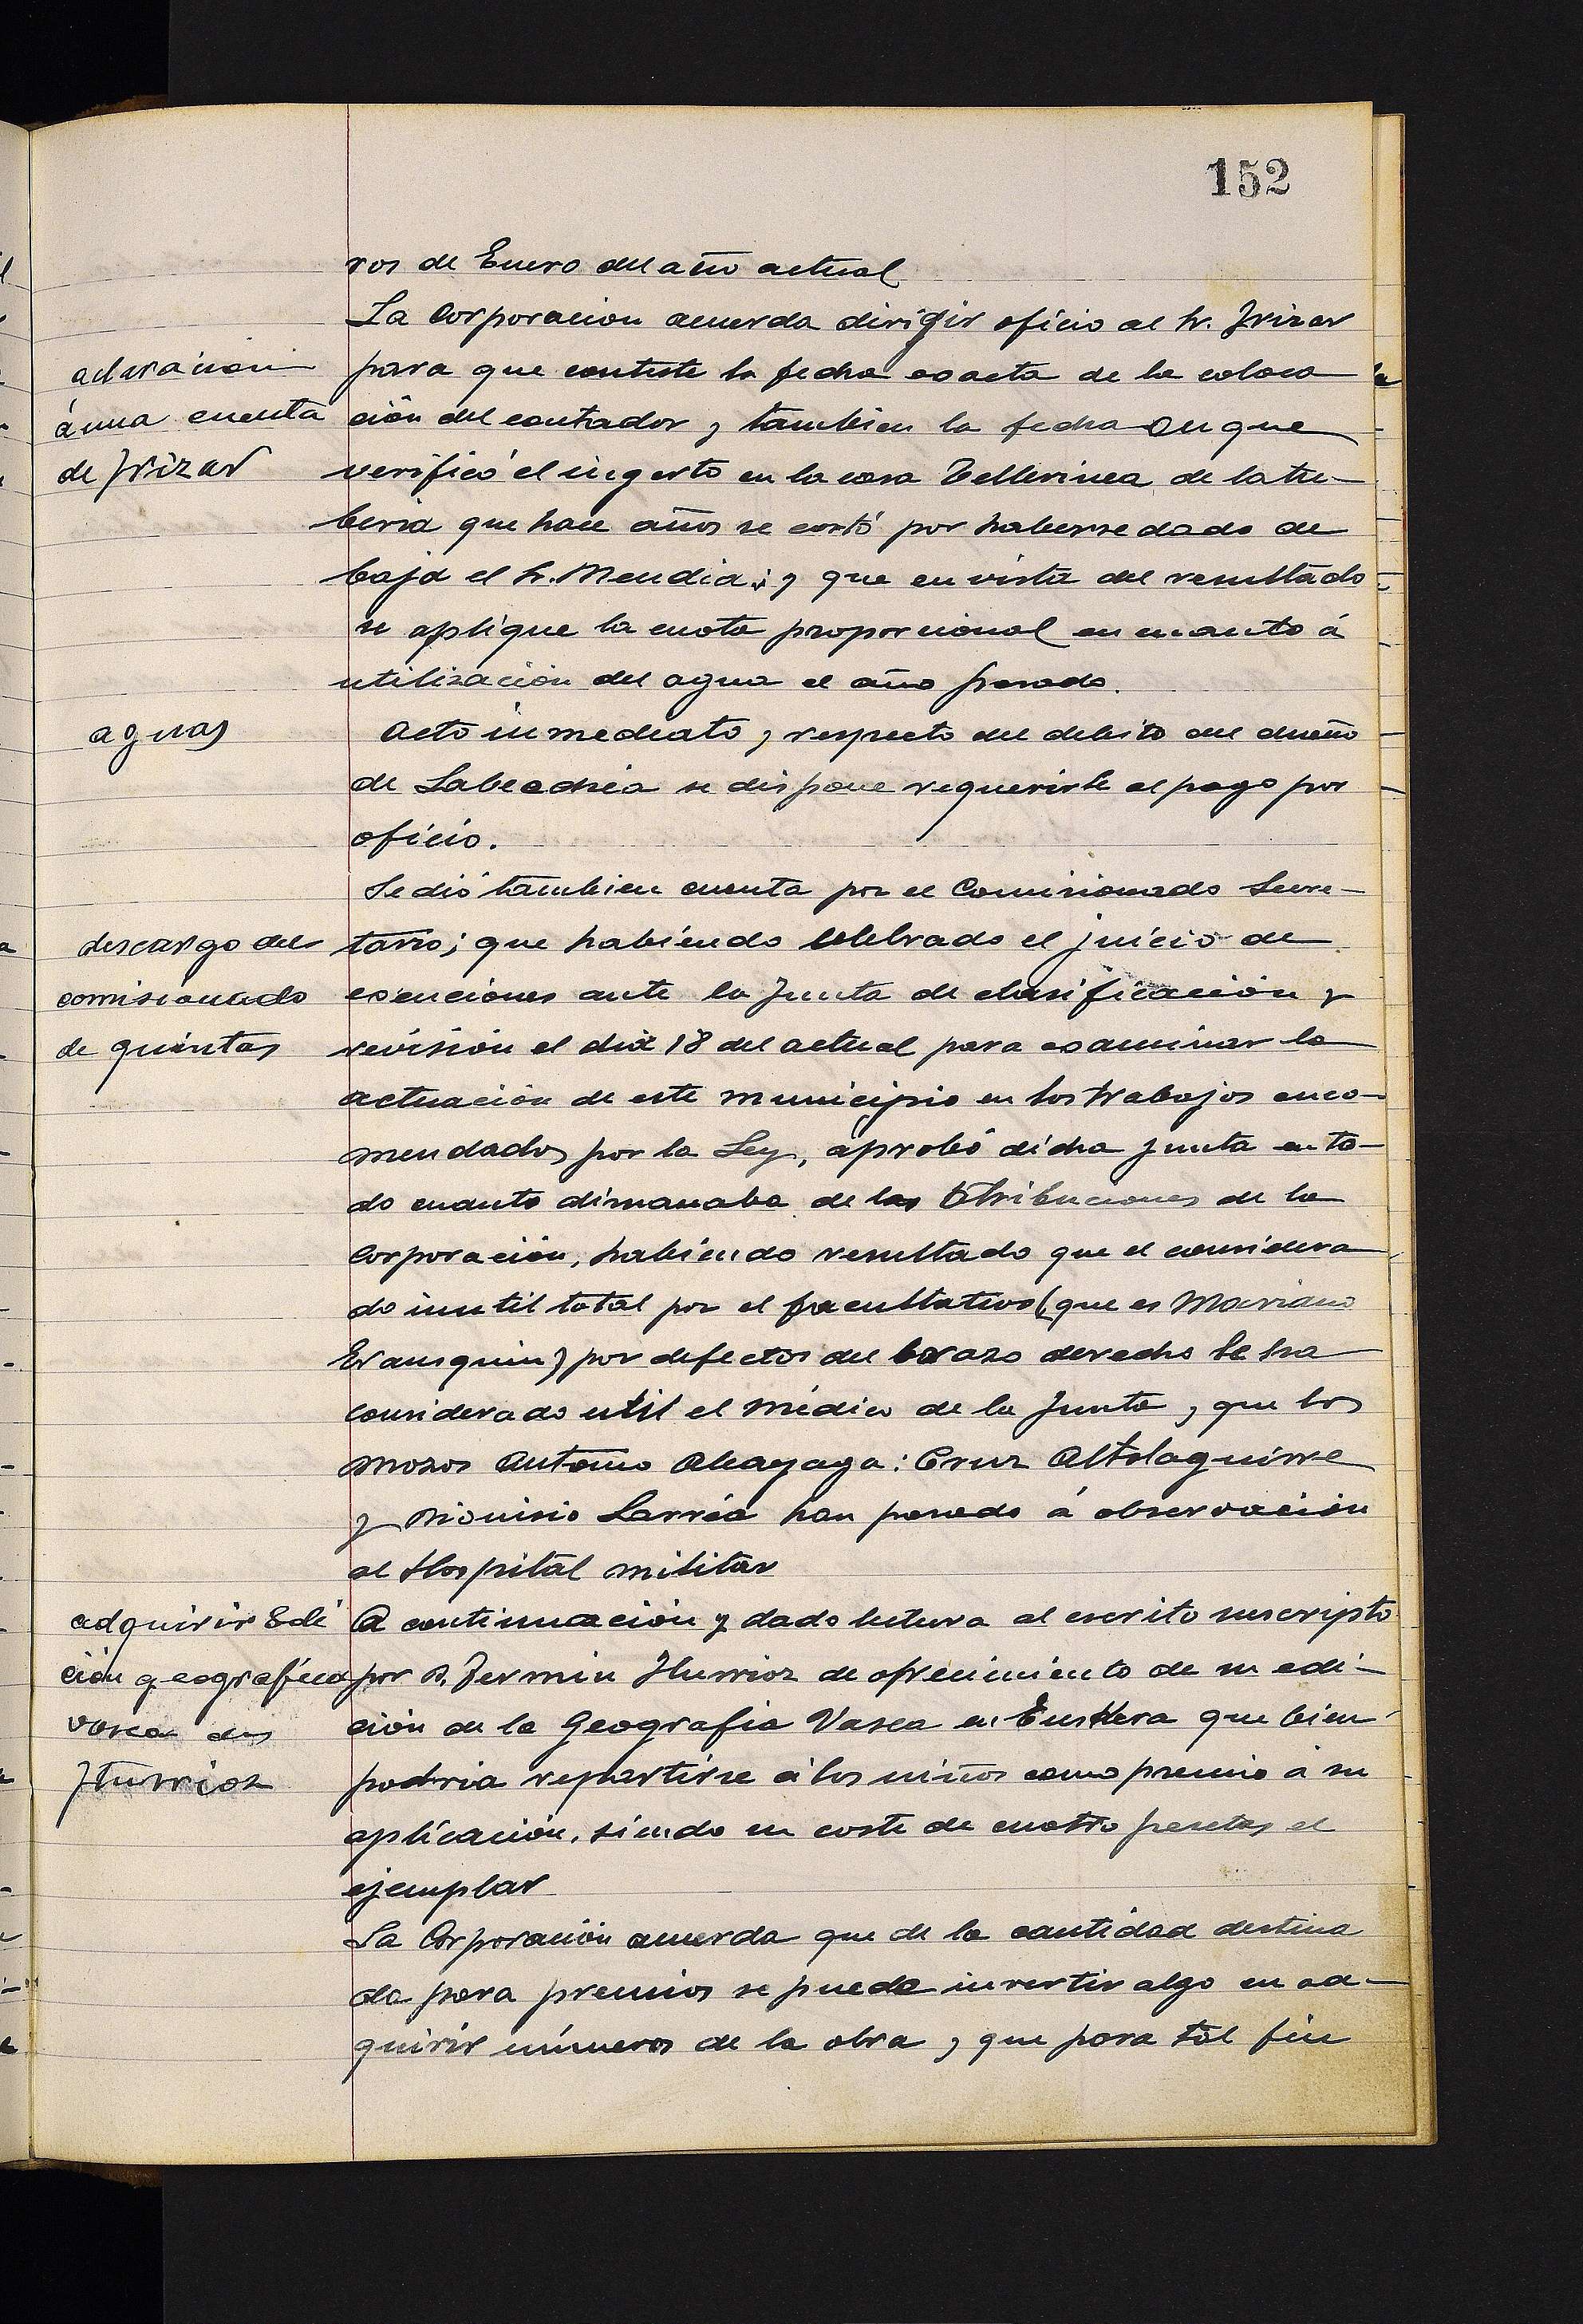 152
ros de Enero del año actual
La Corporacion acuerda dirigir oficio al Sr. Irizar
aclaración
á una cuenta
de Irizar
para que conteste la fecha esacta de la coloca
ción del contador y tambien la fecha en que
verificó el ingerto en la casa Tellerinea de la tu-
beria que hace años se cortó por haberse dado de
baja el Sr. Mendia; y que en vista del resultado
se aplique la cuota proporcional en cuanto á
utilización del agua el año pasado.
aguas
Acto inmediato y respecto del debito del dueño
de Labeachea se dispone requerirle el pago por
oficio.
Se dió tambien cuenta por el Comisionado Secre-
descargo del
comisionado
de quintas
tario; que habiendo celebrado el juicio de
esenciones ante la Junta de clasificación y
revisión el dia 18 del actual para esaminar la
actuación de este municipio en los trabajos enco-
mendados por la Ley, aprobó dicha Junta en to-
do cuanto dimanaba de las atribuciones de la
Corporación, habiendo resultado que el considera
do inutil total por el facultativo (que es Mariano
Eransquin) por defectos del brazo derecho le ha
considerado util el médico de la Junta, y que los
mozos Antonio Aleayaga: Cruz Altolaguirre
y Dionisio Larrea han pasado á observación
al Hospital militar
adquirir Edi
ción geográfica
vasca de
Iturrioz
A continuación y dado lectura al escrito suscripto
por D. Fermin Iturrioz de ofrecimiento de su edi-
ción de la Geografia Vasca en Euskera que bien
podria repartirse á los niños como premio á su
aplicación, siendo su coste de cuatro pesetas el
ejemplar
La Corporación acuerda que de la cantidad destina
da para premios se pueda invertir algo en ad-
quirir números de la obra y que para tal fin